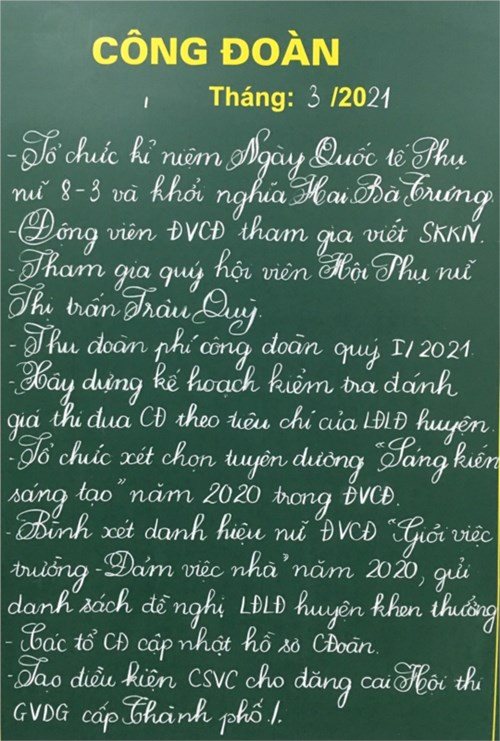 CÔNG ĐOÀN
Tháng: 3 /2021
- Tổ chức kỉ niệm Ngày Quốc tế Phụ
nữ 8-3 và khởi nghĩa Hai Bà Trưng.
- Động viên ĐVCĐ tham gia viết SKKN.
- Tham gia quỹ hội viên Hội Phụ nữ
Thị trấn Trâu Quỳ.
- Thu đoàn phí công đoàn quý I/2021.
- Xây dựng kế hoạch kiểm tra đánh
giá thi đua CĐ theo tiêu chí của LĐLĐ huyện.
- Tổ chức xét chọn tuyên dương "Sáng kiến
sáng tạo" năm 2020 trong ĐVCĐ.
- Bình xét danh hiệu nữ ĐVCĐ "Giỏi việc
trường - Đảm việc nhà" năm 2020, gửi
danh sách đề nghị LĐLĐ huyện khen thưởng
- Các tổ CĐ cập nhật hồ sơ CĐoàn.
- Tạo điều kiện CSVC cho đăng cai Hội thi
GVDG cấp Thành phố./.